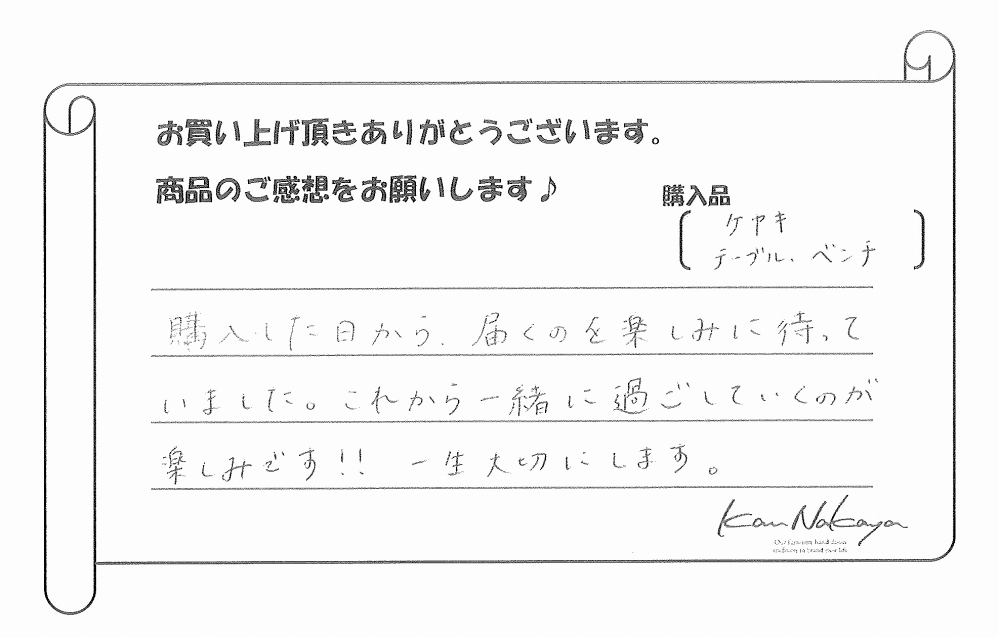 お買い上げ頂きありがとうございます。
商品のご感想をお願いします♪
購入品
ケヤキ
テーブル、ベンチ
購入した日から、届くのを楽しみに待って
いました。これから一緒に過ごしていくのが
楽しみです!! 一生大切にします。
Kan Nakaya